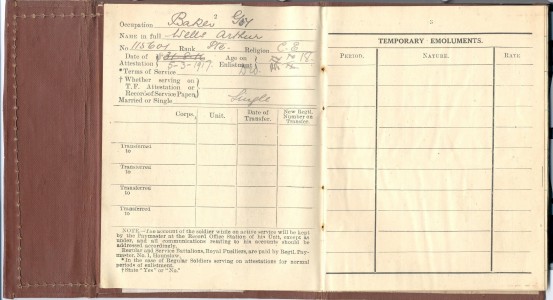 Occupation Baker
NAME in full Wells Arthur
No. 115601 Rank Pte. Religion C.E.
Date of Attestation 5-3-1917. Age on Enlistment
*Terms of Service
†Whether serving on T.F. Attestation or Record of Service Paper
Married or Single Single
Corps. Unit. Date of Transfer. New Regtl. Number on Transfer.
Transferred to
Transferred to
Transferred to
Transferred to
NOTE.—The account of the soldier while on active service will be kept
by the Paymaster at the Record Office Station of his Unit, except as
under, and all communications relating to his accounts should be
addressed accordingly.
Regular and Service Battalions, Royal Fusiliers, are paid by Regtl. Pay-
master, No. 1, Hounslow.
*In the case of Regular Soldiers serving on attestations for normal
periods of enlistment.
†State "Yes" or "No."
3
TEMPORARY EMOLUMENTS.
PERIOD. NATURE. RATE